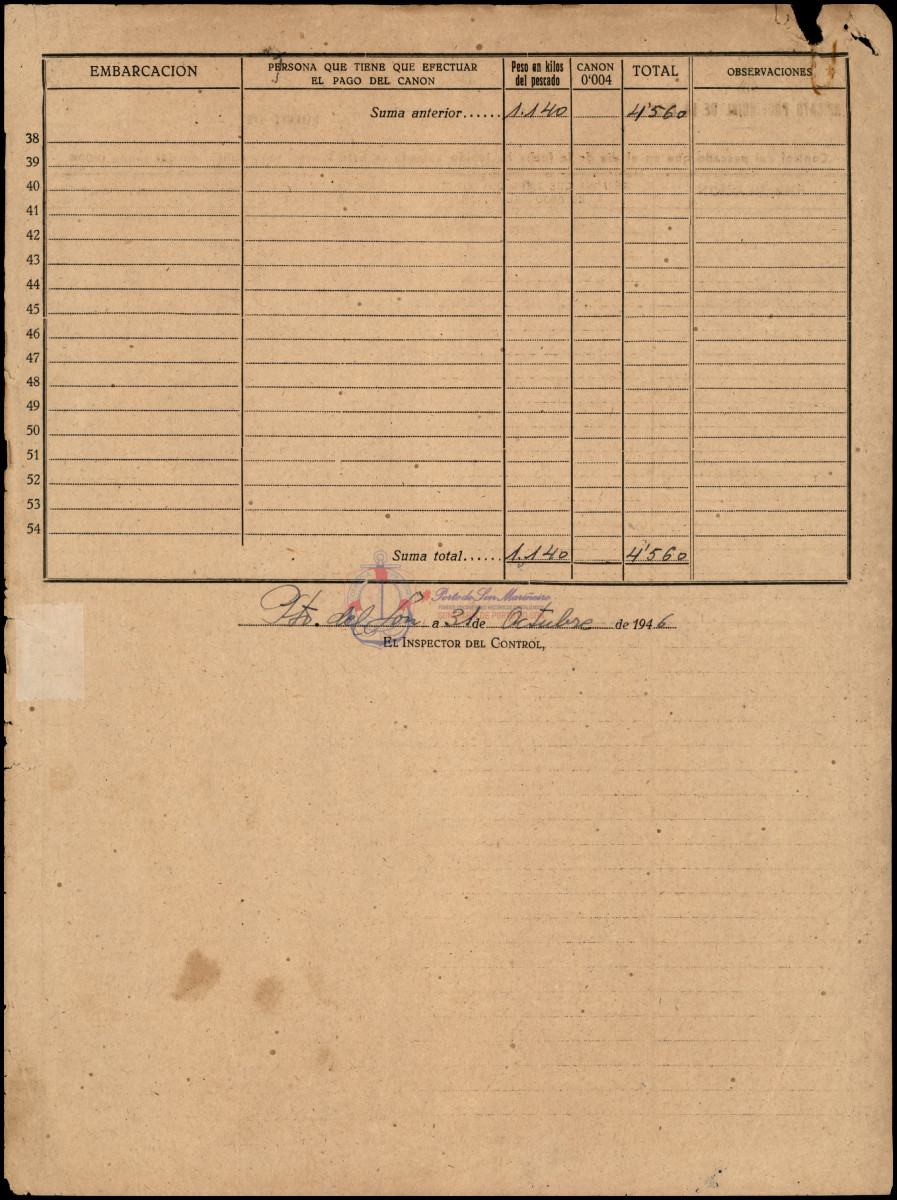 EMBARCACION PERSONA QUE TIENE QUE EFECTUAR EL PAGO DEL CANON Peso en kilos del pescado CANON 0'004 TOTAL OBSERVACIONES
Suma anterior...... 1.140 4'560
38
39
40
41
42
43
44
45
46
47
48
49
50
51
52
53
54
Suma total...... 1.140 4'560
Porto de Son Mariñeiro
Pto. del Son a 31 de Octubre de 1946
EL INSPECTOR DEL CONTROL,